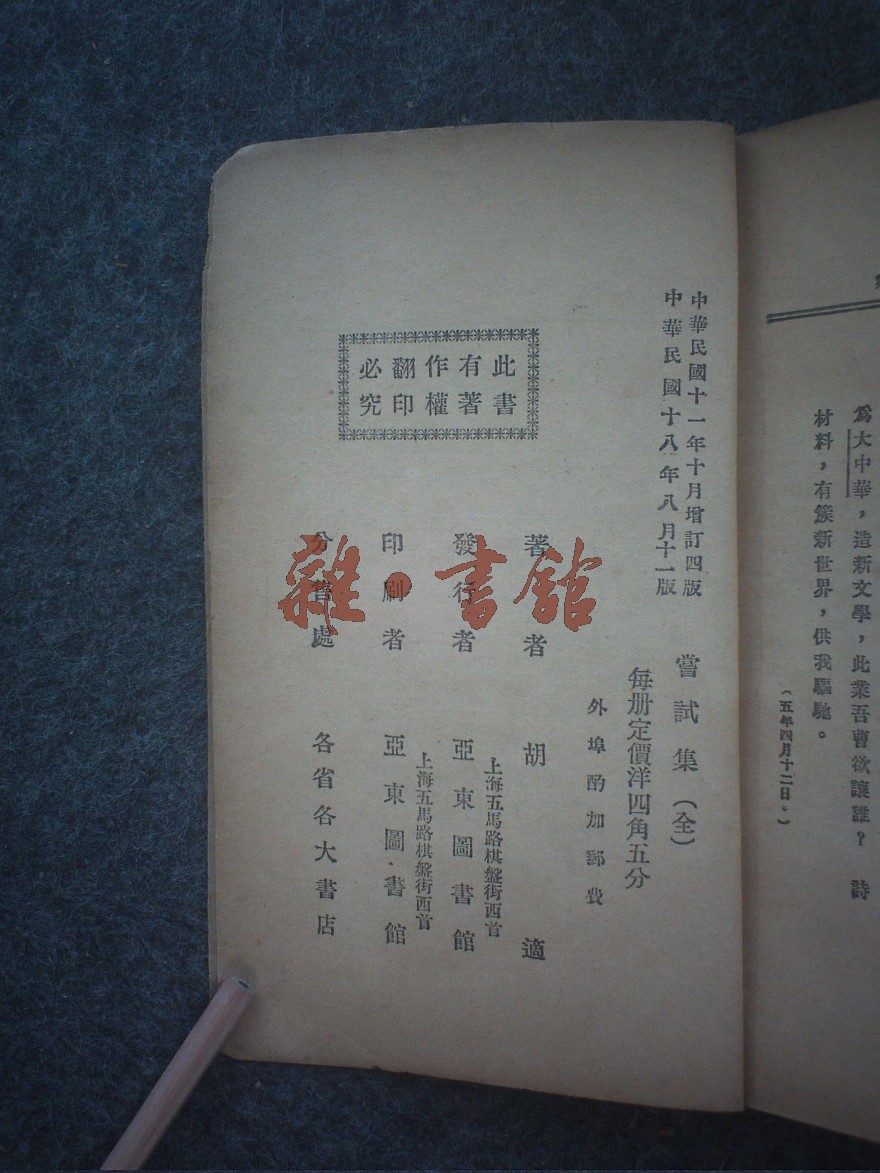 爲大中華，造新文學，此業吾曹欲讓誰？　詩
材料，有簇新世界，供我驅馳。
（五年四月十二日。）
中華民國十一年十月增訂四版
中華民國十八年八月十一版
嘗試集（全）
每册定價洋四角五分
外埠酌加郵費
著者　胡適
發行者　上海五馬路棋盤街西首
亞東圖書館
印刷者　上海五馬路棋盤街西首
亞東圖書館
分售處　各省各大書店
此書
有著
作權
翻印
必究
雜・書館